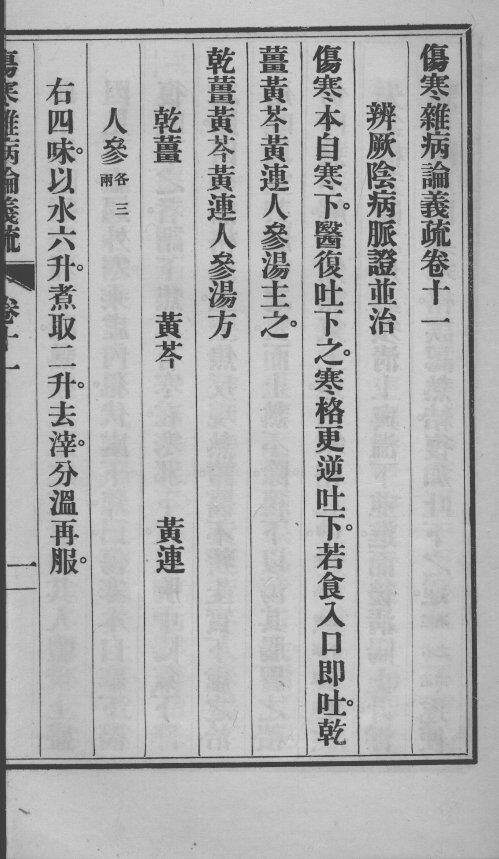 傷寒雜病論義疏卷十一
辨厥陰病脈證並治
傷寒本自寒下。醫復吐下之。寒格更逆吐下。若食入口即吐。乾
薑黃芩黃連人參湯主之。
乾薑黃芩黃連人參湯方
乾薑 黃芩 黃連
人參各三兩
右四味。以水六升。煮取二升。去滓。分溫再服。
傷寒雜病論義疏 卷十一 一